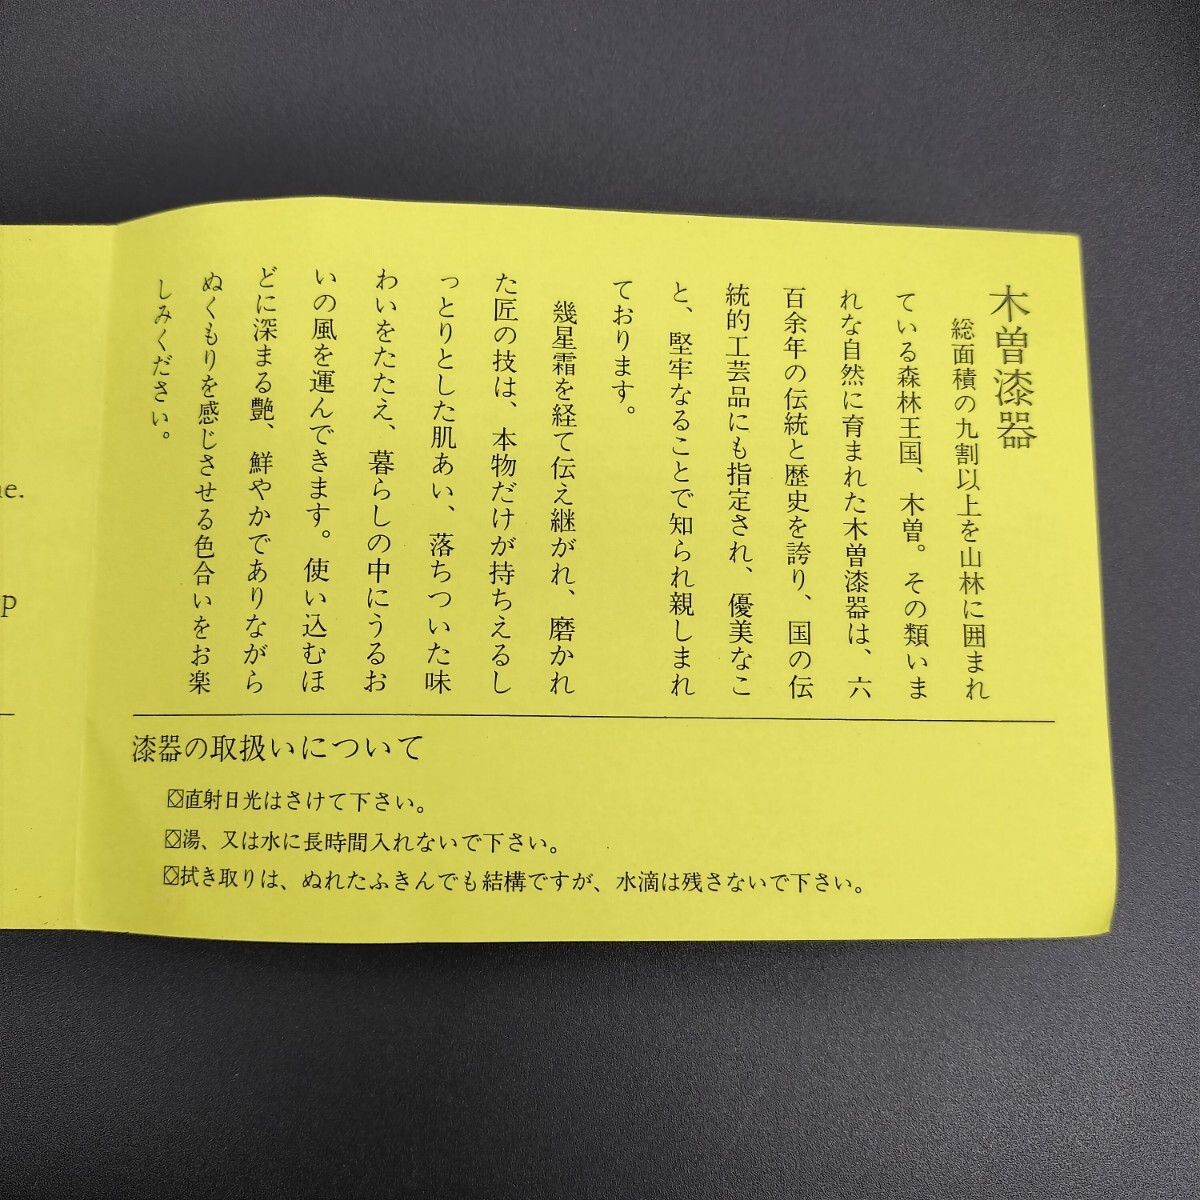 木曽漆器
総面積の九割以上を山林に囲まれ
ている森林王国、木曽。その類いま
れな自然に育まれた木曽漆器は、六
百余年の伝統と歴史を誇り、国の伝
統的工芸品にも指定され、優美なこ
と、堅牢なることで知られ親しまれ
ております。
幾星霜を経て伝え継がれ、磨かれ
た匠の技は、本物だけが持ちえるし
っとりとした肌あい、落ちついた味
わいをたたえ、暮らしの中にうるお
いの風を運んできます。使い込むほ
どに深まる艶、鮮やかでありながら
ぬくもりを感じさせる色合いをお楽
しみください。
漆器の取扱いについて
直射日光はさけて下さい。
湯、又は水に長時間入れないで下さい。
拭き取りは、ぬれたふきんでも結構ですが、水滴は残さないで下さい。